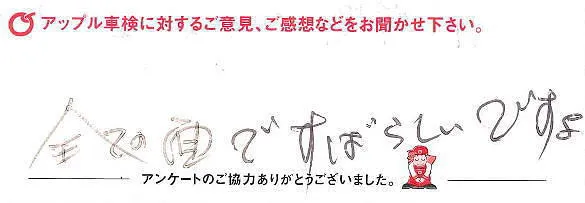 アップル車検に対するご意見、ご感想などをお聞かせ下さい。
全ての面ですばらしいですよ
アンケートのご協力ありがとうございました。